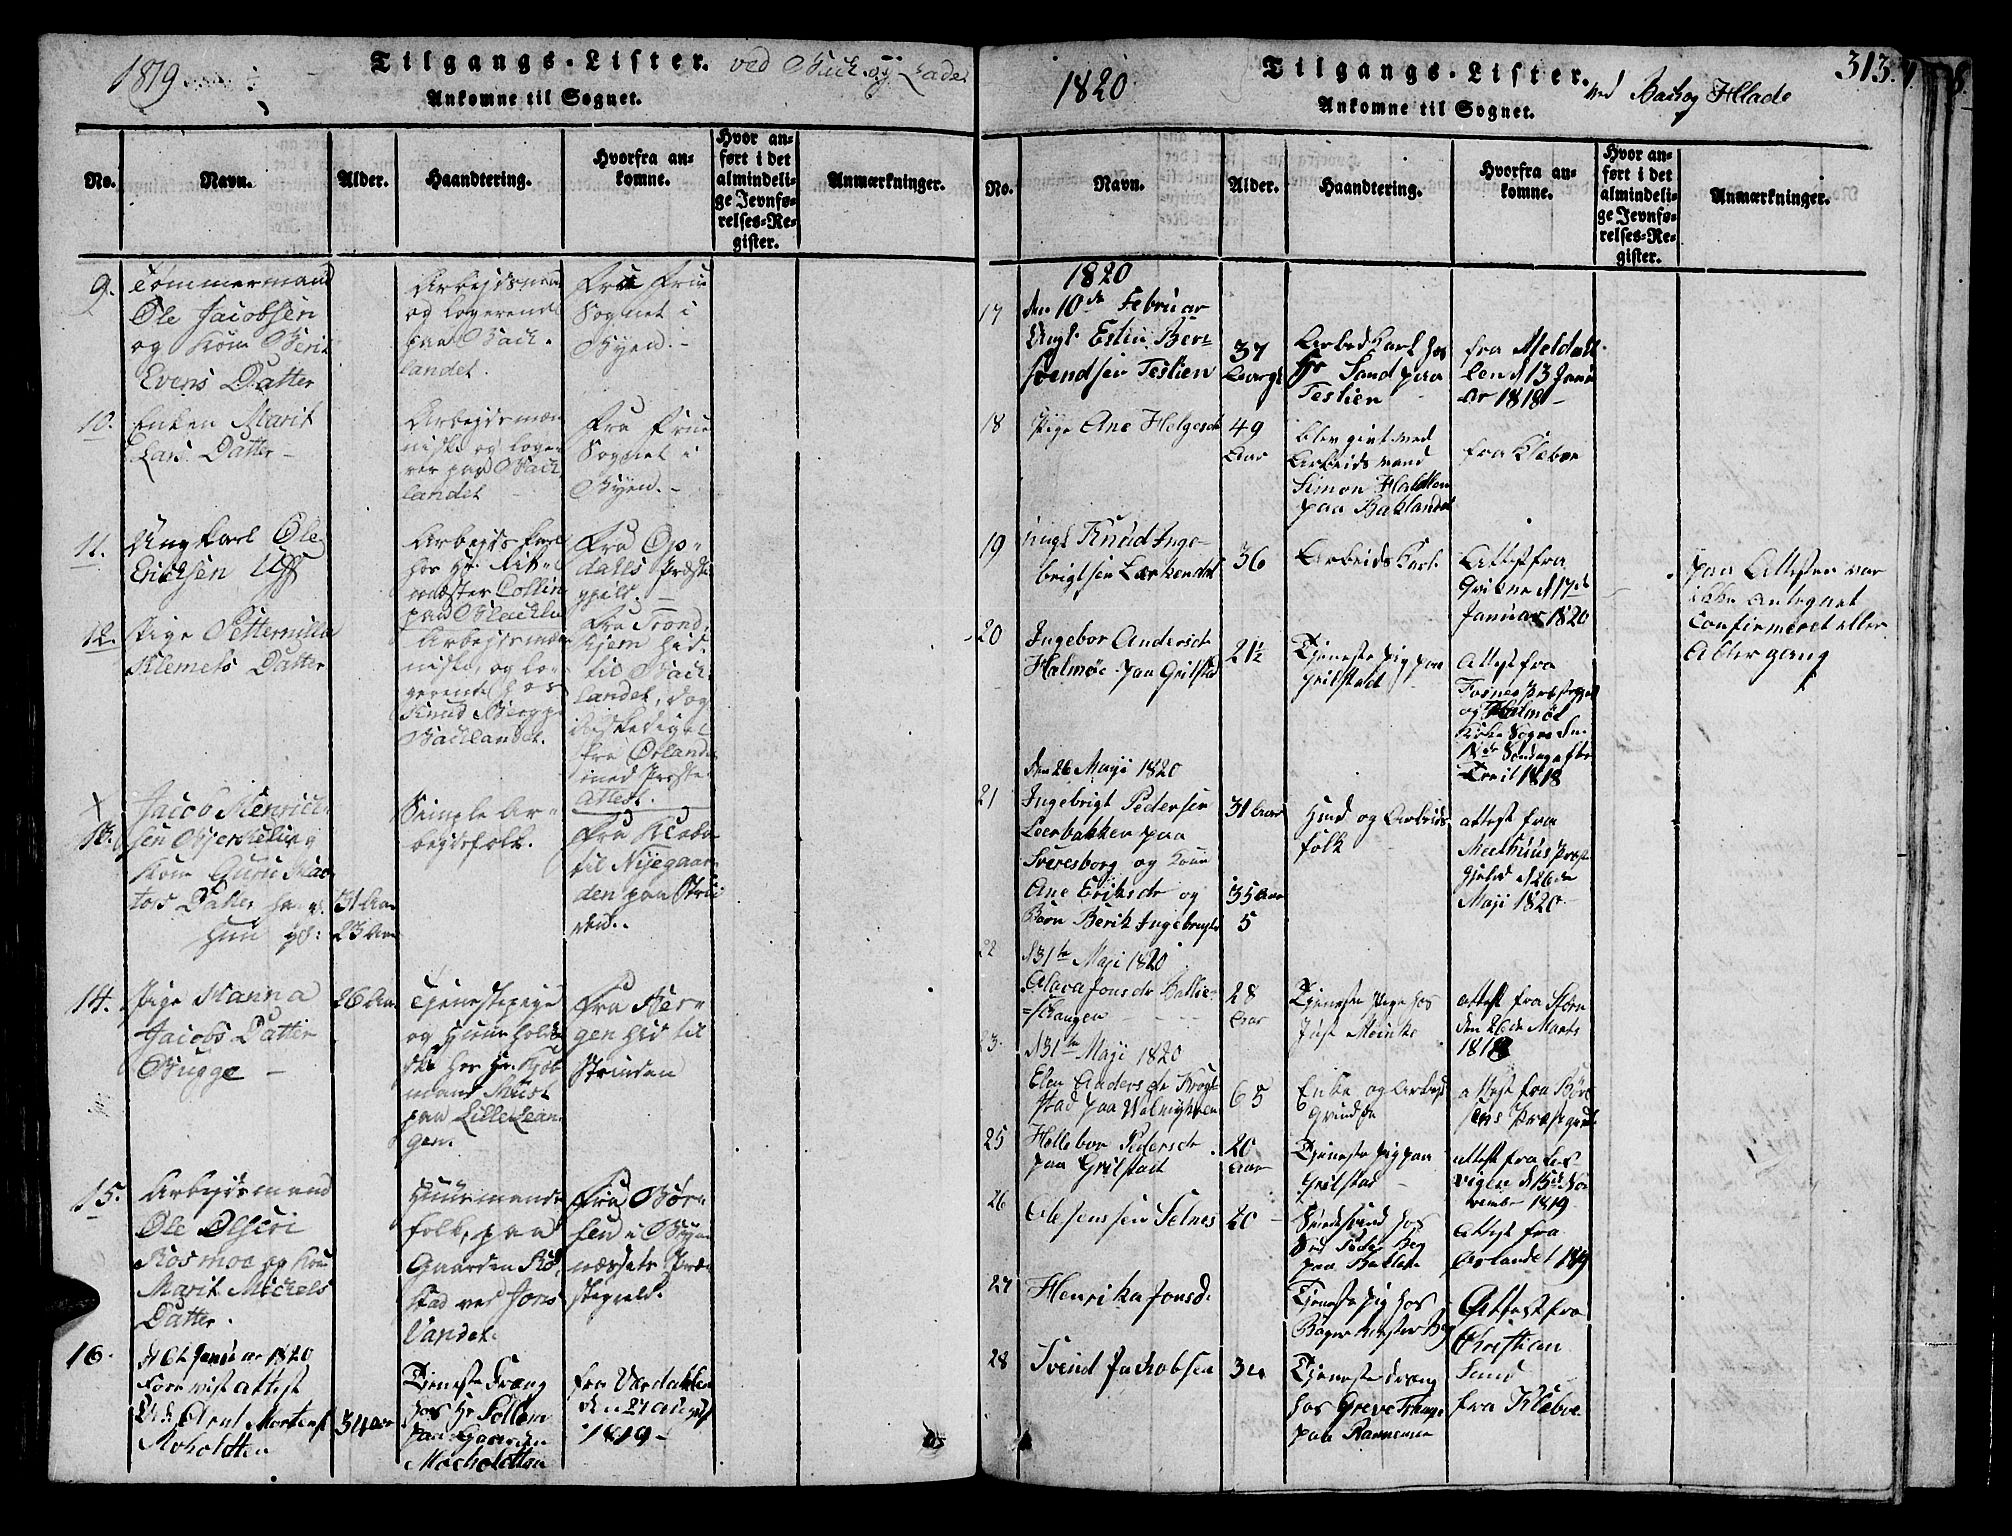 1819
Tilgangs-Lister.
ved Back- og Lade
Ankomne til Sognet.
No.
Navn.
Alder.
Haandtering.
Hvorfra an-
komne.
Hvor an-
ført i det
almindeli-
ge Jevnfø-
relses-Re-
gister.
Anmærkninger.
9.
Tømmermand
Ole Jacobsen
og Kone Berit
Evens Datter
Arbejdsmand
og logerende
paa Back-
landet.
Fra Frue
Sognet i
Byen.-
10.
Enken Marit
Lars Datter-
Arbejdsmen
niske og loge
rer paa Back
landet
Fra Frue
Sognet i
Byen.-
11.
Ungkarl Ole
Ericksen
Arbejds karl
hos Hr. Rit-
mæster Collin
paa Backla
Fra Op-
dalls Præste
gjeld.
12.
Pige Petternilla
Klemets Datter
Arbejdsmen
niske, og lo-
gerende hos
Knud
Backlandet.
Fra Trond,
hjem hid
til Back
landet, dog
fra Ørland
med Præste
Attest.
13.
Jacob Henrick-
sen
Kone Guru
Datter
Hun
31 Aar
23 Aar
Simple Ar-
bejdsfolk.
Fra Klebo
til Nyegaar
den paa Stri
nden.
14.
Pige Hanna
Jacobs Datter
Bugge -
26 Aar
Tjenestepige
hos Hr. Kjøb
mand
paa Lille Lean
gen.
Fra Ber-
gen hid til
Strinden
15.
Arbejdsmand
Ole Olsen
Rosmoe og Kone
Marit Michels
Datter.
Huusmands
folk, paa
Gaarden
stad ved Jons
vandet.
Fra Bør-
sen i Byn
næssets Præ
stegield.
16.
d 6te Januar 1820
Forevist attest
Arnt Mortens
Moholdten
34 Aar
Tjeneste dræng
hos Hr
paa Gaarden
Moholdtten
fra Værdalen
den 27 august
1819 -
1820
Tilgangs-Lister.
ved Bak og Hlade
313.
Ankomne til Sognet.
No.
Navn.
Alder.
Haandtering.
Hvorfra an-
komne.
Hvor an-
ført i det
almindeli-
ge Jevnfø-
relses-Re-
gister.
Anmærkninger.
1820
17
den 10de Februar
Ungk. Esten Ber-
svendsen Testien
37
Aar
Arbeds Karl hos
Hr Sand paa
Testien
fra Meldal
len d 13 Janu
ar 1818 -
18
Pige Ane Helgesdt
49
Aar
blev givt med
Arbeids mand
Simon
paa Baklandet
fra Klæboe
19
ungk Knud Inge-
brigtsen Lærkendal
36
Arbeids Karl
Attest fra
d 17de
Januar 1820
paa Attesten var
ikke antegnet
Confirmeret eller
Altergang
20
Ingebor Andersdt
Halmøe paa Grilstad
21½
Tjeneste pige paa
Grilstad
Attest fra
Fosnes Præstegjel
og Halmøe
Kirke Sogn den
Søndag efter
Treit 1818
21
den 26 Maji 1820
Ingebrigt Pedersen
Leerbakken paa
Sveresborg og Kone
Ane Eriksdr og
Barn Berit Ingebrigtsd
31 Aar
35 Aar
5
Huus og Arbeids
folk
attest fra
Meelhuus Præste
gjeld d 26de
Maji 1820
22
d 31te Maji 1820
Jonsdr
28
Aar
Tjeneste Pige hos
Just Meinke
attest fra Støren
den 26de Marts
1818
23.
d 31te Maji 1820
Elen Andersdr Krog-
stad paa
65
Enke og Arbeids
qvinde
attest fra Bør-
sens Præstegjeld
25
Hellebor Pedersdr
paa Grilstad
20
Aar
Tjeneste pige paa
Grilstad
attest fra Lex-
vigen d 15de No-
vember 1819
26
Ole Jenssen Selnes
20
hos
Peder Berg
paa Baklan
Attest fra
Ørlandet 1819
27
Henrika Jonsd.
Tjeneste pige hos
Bager mester Berg
Attest fra
Christian
Sund
28
Svend Jakobsen
34
Tjeneste dræng
hos Greve Trampe
paa Ranemme
fra Klæboe